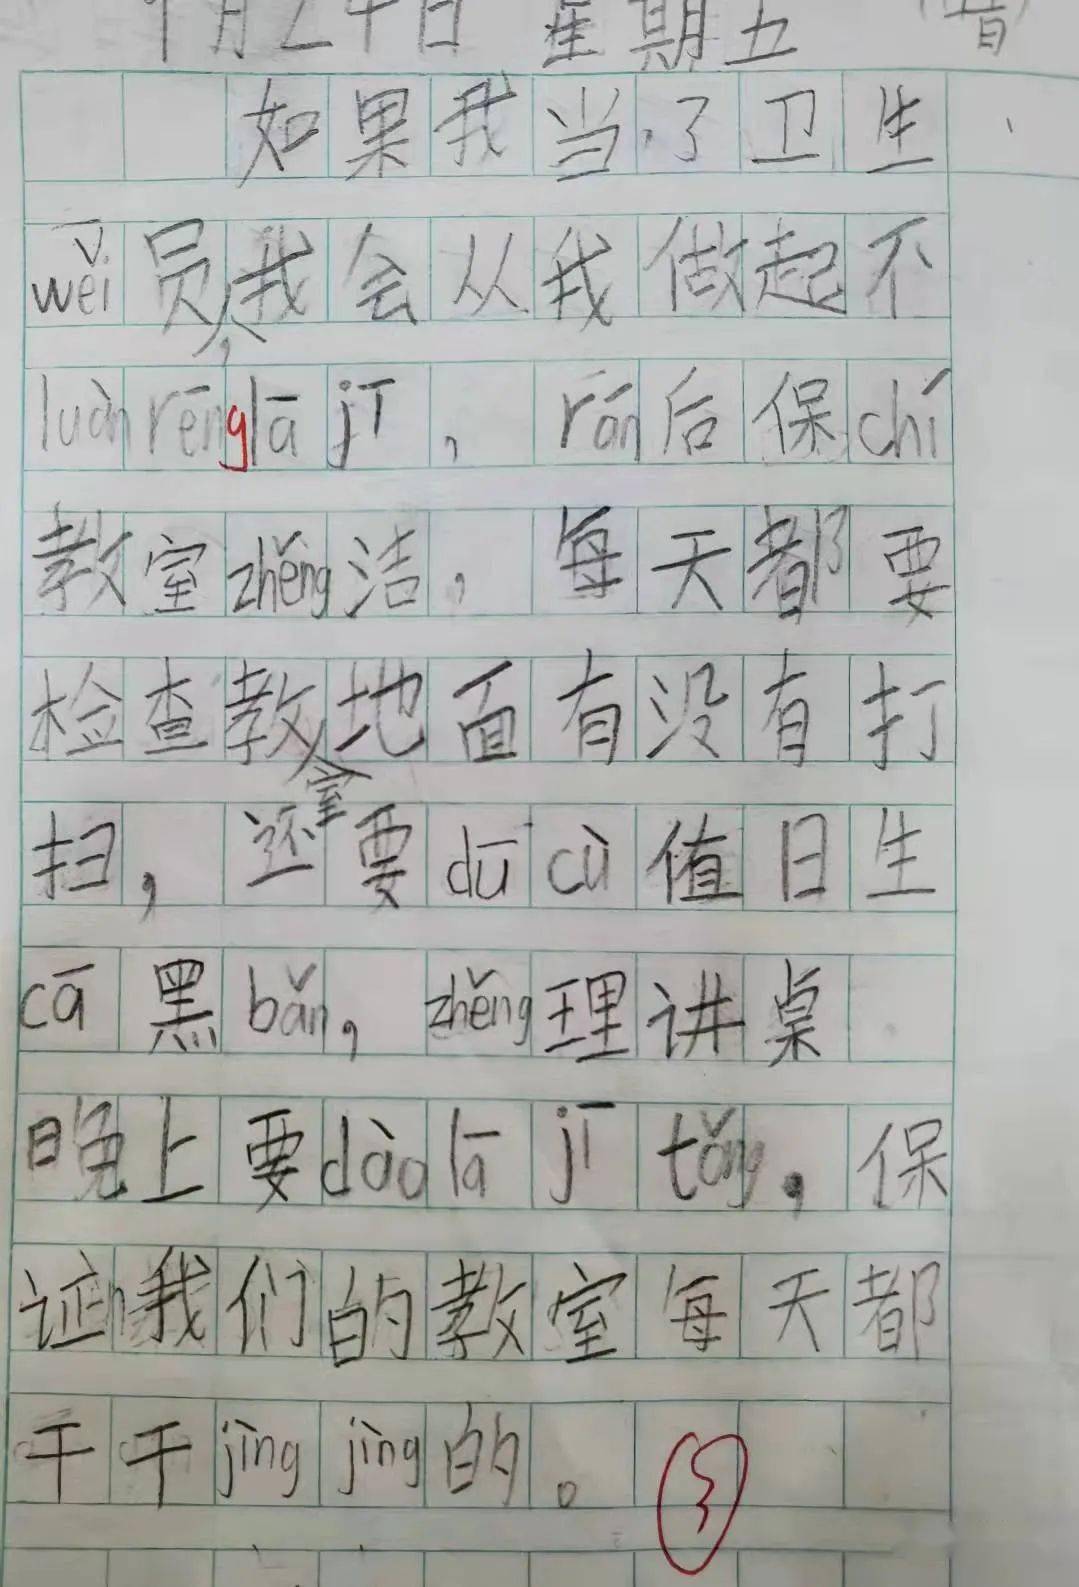 9月24日 星期五
如果我当了卫生
wěi员,我会从我做起不
luàn rēng lā jī，rán后保chí
教室zhěng洁，每天都要
检查教室地面有没有打
扫，还要dū cù值日生
cā黑bǎn，zhěng理讲桌
晚上要dào lā jī tǒng，保
证我们的教室每天都
干干jìng jìng的。